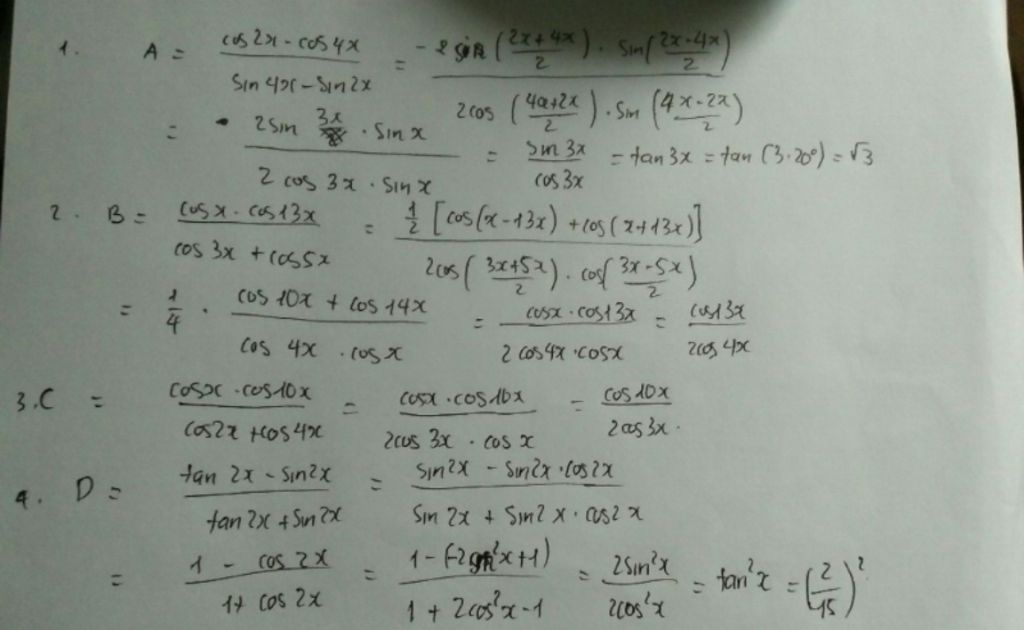 1. A = (cos2x - cos4x)/(sin 4x - sin 2x) = (-2 sin ((2x+4x)/2) · sin((2x-4x)/2))/(2cos ((4x+2x)/2) · sin ((4x-2x)/2))
= (2sin 3x · sin x)/(2 cos 3x · sin x) = (sin 3x)/(cos 3x) = tan 3x = tan (3·20°) = √3
2. B = (cos x · cos13x)/(cos 3x + cos5x) = (1/2 [cos(x-13x) + cos(x+13x)])/(2cos((3x+5x)/2) · cos((3x-5x)/2))
= 1/4 · (cos 10x + cos 14x)/(cos 4x · cos x) = (cosx · cos13x)/(2 cos4x · cosx) = (cos13x)/(2cos 4x)
3. C = (cosx · cos10x)/(cos2x + cos4x) = (cosx · cos10x)/(2cos 3x · cos x) = (cos10x)/(2cos3x).
4. D = (tan 2x - sin2x)/(tan 2x + sin 2x) = (sin2x - sin2x · cos2x)/(sin 2x + sin2x · cos2x)
= (1 - cos 2x)/(1+ cos 2x) = (1 - (-2sin²x+1))/(1 + 2cos²x - 1) = (2sin²x)/(2cos²x) = tan²x = (2/15)²